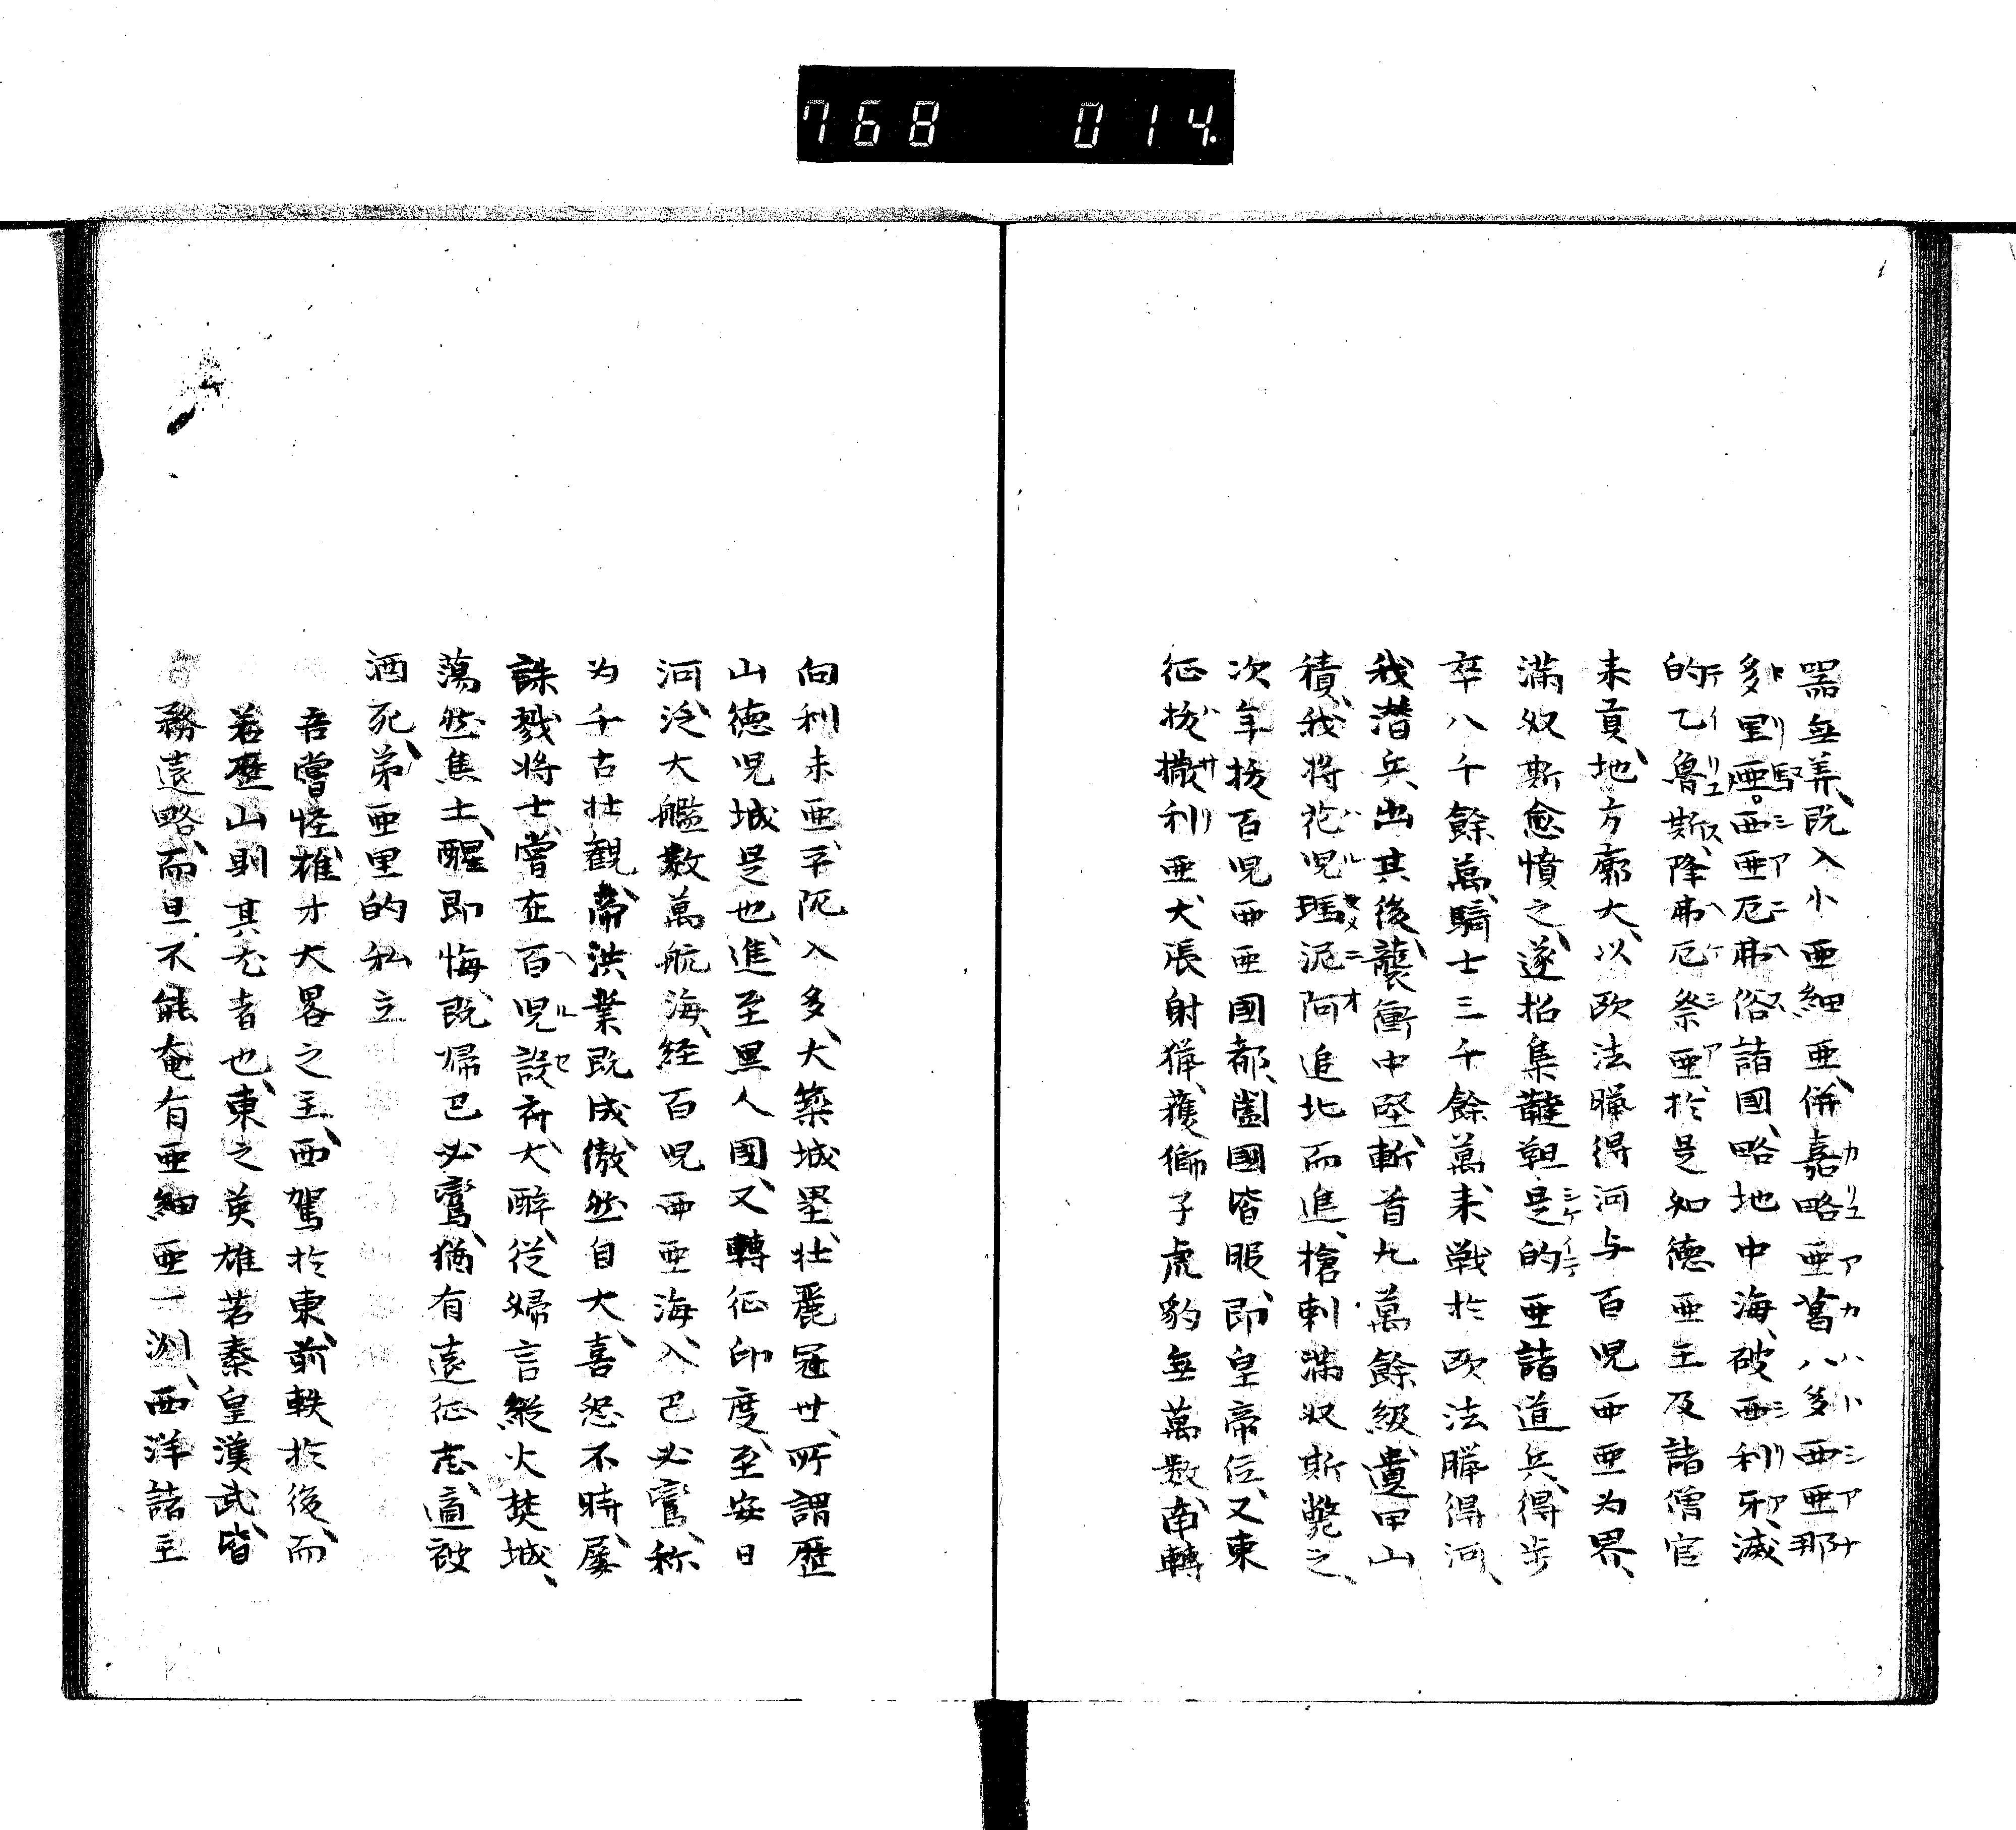 768 014.
噐無算、既入小亜細亜、併嘉略亜葛八多西亜那
多里亜。西亜厄弗俗諸國、略地中海、破西利牙、滅
的乙魯斯、降弗厄祭亜、於是如徳亜王及諸僧官
来貢、地方廓大、以欧法臘得河与百児西亜为界、
滿奴斯愈憤之、遂招集韃靼是的亜諸道兵、得歩
卒八千餘萬、騎士三千餘萬、来戦於欧法臘得河、
我潜兵出其後、襲衝中堅、斬首九萬餘級、遺甲山
積、我将花児瑶泥阿追北而進、槍刺滿奴斯斃之、
次年抜百児西亜國都、闔國皆服、即皇帝位、又東
征抜撒利亜、大張射猟、獲獅子虎豹無萬数、南轉
向利未亜、平阨入多、大築城塁、壮麗冠世、所謂歴
山徳児城是也、進至黒人國、又轉征印度、至安日
河、泛大艦数萬航海、経百児西亜海、入巴必鸞、称
为千古壮觀、帝洪業既成、傲然自大、喜怒不時、屡
誅戮将士、嘗在百児設斉大酔、従婦言縦火焚城、
蕩然焦土、醒即悔、既帰巴必鸞、猶有遠征志、適被
酒死、弟亜里的私立
吾嘗怪、雄才大畧之主、西駕於東、前軼於後、而
若歴山則其尤者也、東之英雄若秦皇漢武、皆
務遠略、而且不能奄有亜細亜一洲、西洋諸主